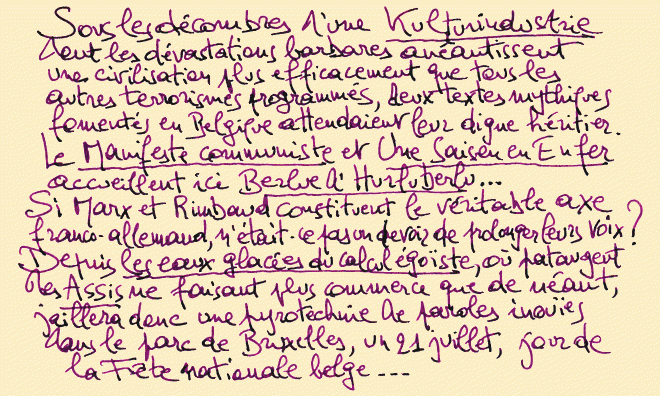 Sous les décombres d'une Kulturindustrie
dont les dévastations barbares anéantissent
une civilisation plus efficacement que tous les
autres terrorismes programmés, deux textes mythiques
fomentés en Belgique attendaient leur digne héritier.
Le Manifeste communiste et Une Saison en Enfer
accueillent ici Berlue d'Hurluberlu...
Si Marx et Rimbaud constituent le véritable axe
franco-allemand, n'était-ce pas un devoir de prolonger leurs voix ?
Depuis les eaux glacées du calcul égoïste, où pataugent
des Assis ne faisant plus commerce que de néant,
jaillera donc une pyrotechnie de paroles inouïes
dans le parc de Bruxelles, un 21 juillet, jour de
la Fête nationale belge ...